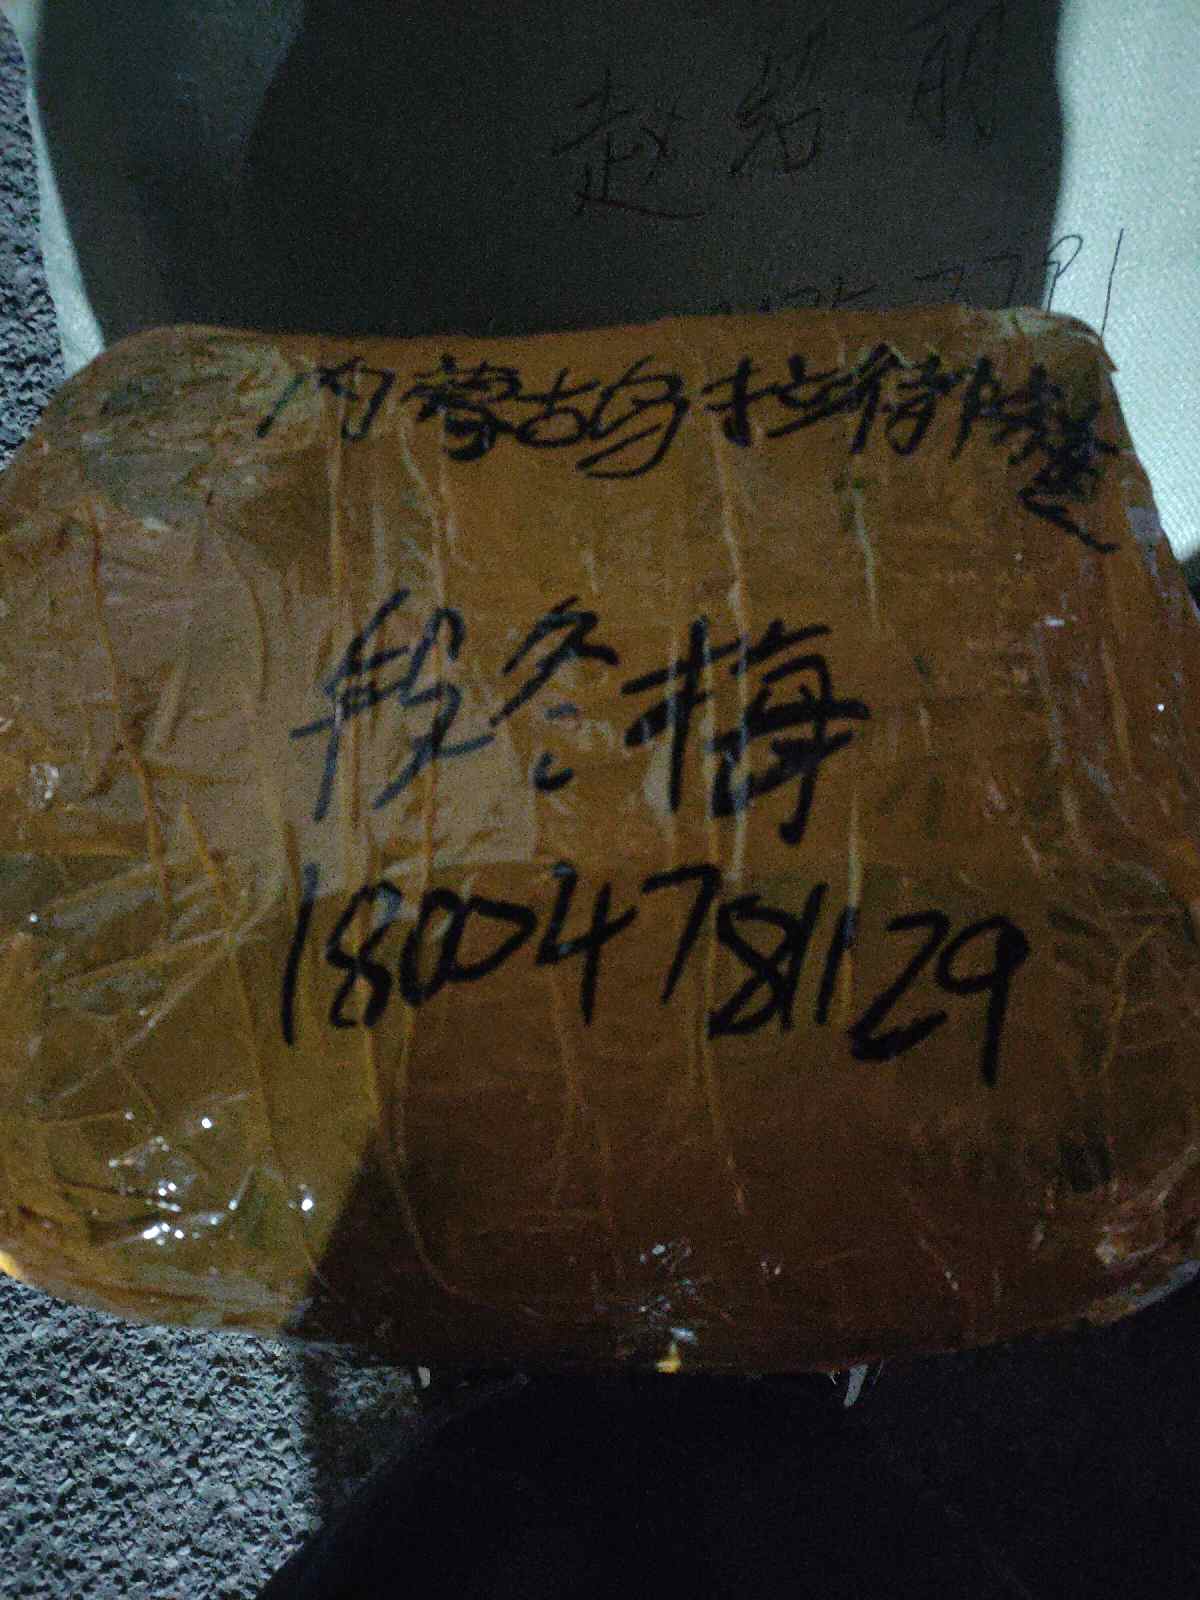 赵
内蒙古乌拉特
段冬梅
18004781129